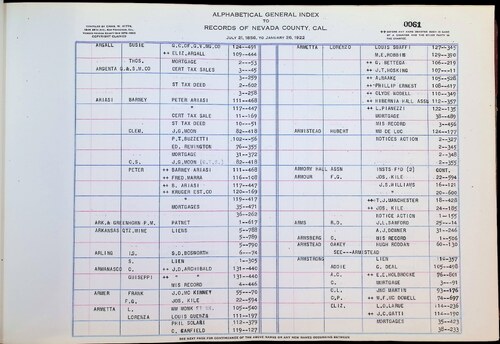 ALPHABETICAL GENERAL INDEX
TO
RECORDS OF NEVADA COUNTY, CAL.
0061
JULY 21, 1856, TO JANUARY 26, 1922
ARGALL SUSIE G.C.OF G.V.NG.CO 124—491
++ ELIZ.ARGALL 109—444
THOS. MORTGAGE 2—53
ARGENTA G.&S.M.CO CERT TAX SALES 3—45
" 3—259
ST TAX DEED 2—602
" 3—258
ARIASI BARBEY PETER ARIASI 111—468
" 117—447
CERT TAX SALE 11—169
ST TAX DEED 16—51
CLEM. J.O.MOON 82—418
P.T.BUZZETTI 102—56
ED. REMINGTON 76—355
MORTGAGE 31—372
C.S. J.O.MOON 82—418
PETER ++ BARBEY ARIASI 111—468
++ FRED.MARRA 116—108
++ B. ARIASI 117—447
++ KRUGER EST.CO 120—169
" 119—417
MORTGAGES 35—471
" 36—262
ARK.& GREENHORN P.M. PATNET 1—617
ARKANSAS QTZ.MINE LIENS 5—788
" 5—789
" 5—790
ARLING I.D. B.D.BOSWORTH 6—74
S. LIEN 1—305
ARMANASCO C. ++ J.D.ARCHIBALD 131—446
GUISEPPI " " 131—446
MIS RECORD 4—446
ARMER FRANK J.C.MC KINNEY 55—78
F.G. JOS. KILE 22—594
ARMETTA L. WM MONK 54—540
LORENZA LOUIS QUENZA 111—197
PHIL SOLARI 112—379
C. GARFIELD 119—127
ARMETTA LORENZO LOUIS QUAFFI 127—345
M.E.ROBBIN 129—390
++ G. BETTEGA 106—219
++ J.T.HOSKING 107—41
++ A.RAAKE 105—528
++ PHILLIP ERNST 108—417
++ CLYDE NOBELL 110—349
++ HIBERNIA HALL ASSN 112—357
++ L.PIANEZZI 122—135
MORTGAGE 38—489
MIS RECORD 3—456
ARMISTEAD HUBERT WM DE LUC 124—177
NOTICES ACTION 2—327
" 2—345
" 2—348
" 2—355
ARMORY HALL ASSN INSTS F'D [2] CONT.
ARMOUR F.G. JOS.KILE 22—594
J.S.WILLIAMS 16—121
" 20—609
++ T.J.MANCHESTER 18—428
++ JOS. KILE 24—185
NOTICE ACTION 1—155
ARMS R.D. J.L.SANFORD 25—14
ARMSBERG C. A.J.DOWNER 31—246
MIS RECORD 1—506
ARMSTEAD OAKEY HUGH RODDAN 66—138
SEE——ARMISTEAD
ARMSTRONG LIEN 14—357
ADDIE G. DEAL 105—498
A.C. ++ E.J.HOLBROOKE 76—801
C. MORTGAGE 3—91
C.L. JNO MARTIN 93—176
C.P. ++ W.P.MC DONELL 74—697
CLIZ. L.O.LARUE 114—236
++ J.C.GATTI 114—192
MORTGAGES 35—423
" 38—233
SEE NEXT PAGE FOR CONTINUANCE OF THE ABOVE NAMES OR ANY NEW NAMES BEGINNING BETWEEN